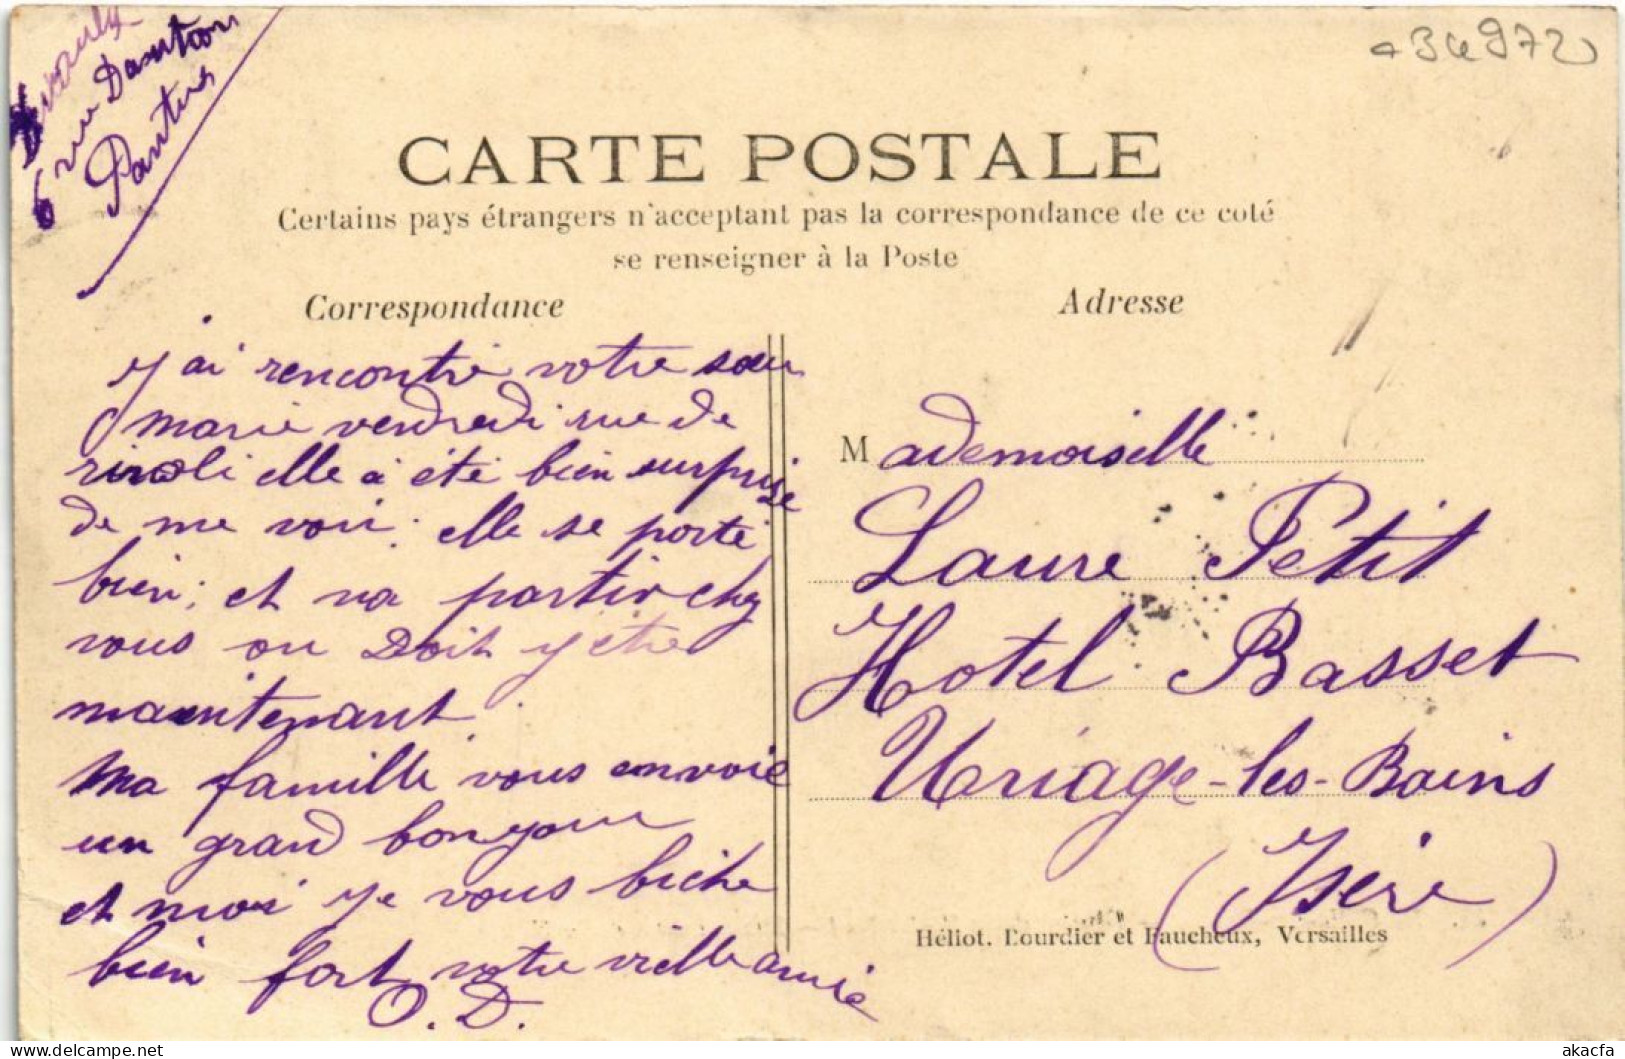 6 rue Danton
Pantin
34972
CARTE POSTALE
Certains pays étrangers n'acceptant pas la correspondance de ce coté
se renseigner à la Poste
Correspondance
Adresse
j'ai rencontré votre sœur
marie vendredi rue de
rivoli elle a été bien surprise
de me voir. elle se porte
bien; et va partir chez
vous ou doit y être
maintenant.
Ma famille vous envoie
un grand bonjour
et moi je vous biche
bien fort votre vielle amie
O. D.
Mademoiselle
Laure Petit
Hotel Basset
Uriage-les-Bains
(Isère)
Héliot. Bourdier et Faucheux, Versailles
delcampe.net
akacfa